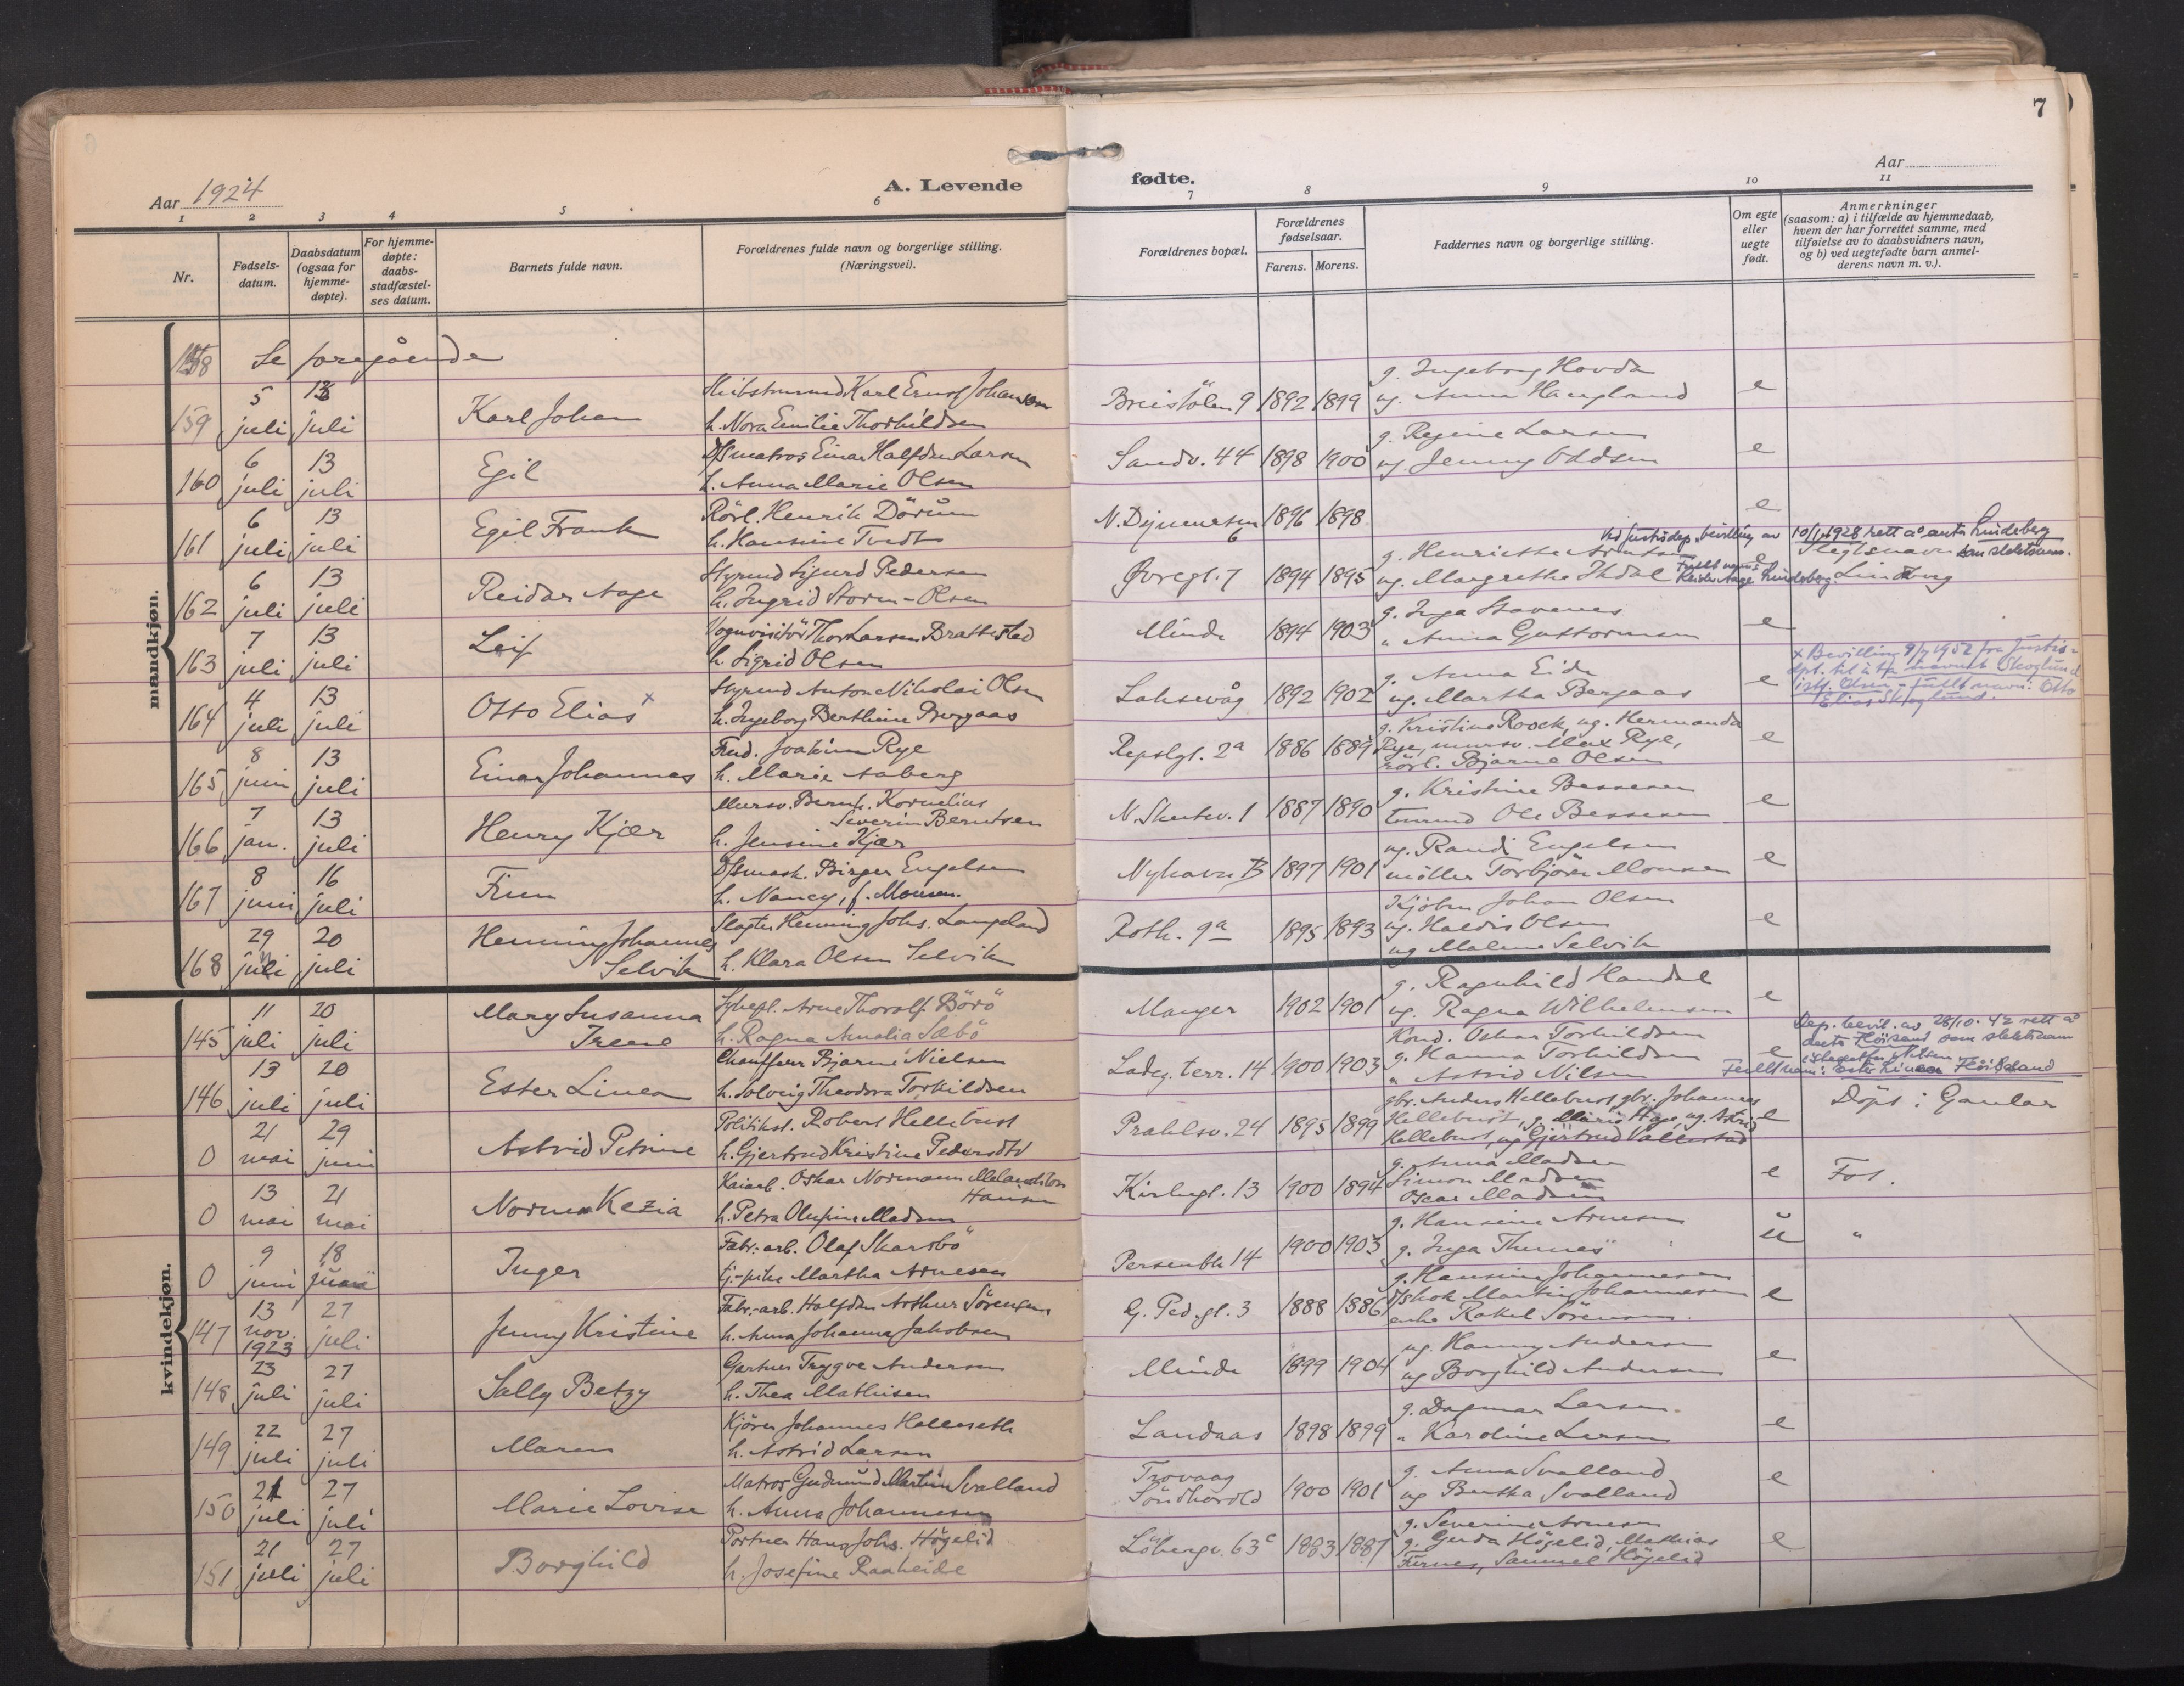 7
Aar 1924
A. Levende
fødte.
Aar
1 2 3 4 5 6 7 8 9 10 11
Nr.
Fødsels-
datum.
Daabsdatum
(ogsaa for
hjemme-
døpte).
For hjemme-
døpte:
daabs-
stadfæstel-
ses datum.
Barnets fulde navn.
Forældrenes fulde navn og borgerlige stilling.
(Næringsvei).
Forældrenes bopæl.
Forældrenes
fødselsaar.
Farens. Morens.
Faddernes navn og borgerlige stilling.
Om egte
eller
uegte
født.
Anmerkninger
(saasom: a) i tilfælde av hjemmedaab,
hvem der har forrettet samme, med
tilføielse av to daabsvidners navn,
og b) ved uegtefødte barn anmel-
derens navn m. v.).
mandkjøn.
158 Se foregående
159 5 juli 13 juli Karl Johan
Karl Ernst Johansen
h. Nora Emilie Thorkildsen
Breistölen 9 1892 1899
g. Ingeborg Hovda
ug. Anna Haugland
e
160 6 juli 13 juli Egil
D/S matros Einar Halfdan Larsen
h. Anna Marie Olsen
Sandv. 44 1898 1900
g. Regine Larsen
ug. Jenny Oldsen
e
161 6 juli 13 juli Egil Frank
Rörl. Henrik Dörum
h. Hansine Tvedt
6 1896 1898
e
162 6 juli 13 juli Reidar Aage
Styrmd Sigurd Pedersen
h. Ingrid Storm-Olsen
Øvregt. 7 1894 1895
g. Henriette
ug. Margrethe Ihdal
Ved justisdep. bevilling av 10/1 1928 rett a° anta Lindeberg
som slektsnavn.
Fullt navn:
Reidar Aage Lindeberg.
163 7 juli 13 juli Leif
Vognvisitör Thor Larsen Brattestad
h. Sigrid Olsen
Minde 1894 1903
g. Inga Stavenes
" Anna Guttormsen
e
164 4 juli 13 juli Otto Elias x
Styrmd Anton Nikolai Olsen
h. Ingeborg Berthine Bergaas
Laksevåg 1892 1902
g. Anna Eide
ug. Martha Bergaas
e
x Bevilling 9/7 1952 fra Justis-
dpt. til å ta navnet Skoglund
istf. Olsen - fullt navn: Otto
Elias Skoglund.
165 8 juni 13 juli Einar Johannes
Joakim Rye
h. Marie Aaberg
Repslgt. 2a 1886 1889
g. Kristine Roock, ug. Hermanda
Rye, mursv. Max Rye,
rörl. Bjarne Olsen
e
166 7 jan. 13 juli Henry Kjær
Mursv. Bernh. Kornelius
Severin Berntsen
h. Jensine Kjær
N. Skutev. 1 1887 1890
g. Kristine Bessesen
Ole Bessesen
e
167 8 juni 16 juli Finn
D/S mask. Birger Engelsen
h. Nancy, f. Monsen.
Nyhavn B 1897 1901
ug. Randi Engelsen
möller Torbjörn Monsen
e
168 29 juli 20 juli Henning Johannes
Selvik
Slagter Henning Johs. Langeland
h. Klara Olsen Selvik
Roth. 9a 1895 1893
Kjöbm Johan Olsen
ug. Haldis Olsen
ug Malene Selvik
e
kvindekjøn.
145 11 juli 20 juli Mary Susanna
Irene
Arne Thoralf Börö
h. Ragna Amalia Sæbö
Manger 1902 1901
g. Ragnhild Handal
ug. Ragna Wilhelmsen
e
146 13 juli 20 juli Ester Linea
Chauffeur Bjarne Nielsen
h. Solveig Theodora Torkildsen
Ladeg. terr. 14 1900 1903
Kond. Oskar Torkildsen
g. Hanna Torkildsen
" Astrid Nilsen
e
Dep. bevil. av 28/10. 42 rett a°
anta Flöisand som slektsnavn
istedetfor Nilsen
Fullt navn: Ester Linea Flöisand
0 21 mai 29 juni Astrid Petrine
Politikst. Robert Hellebust
h. Gjertrud Kristine Pedersdtr
Prahlsv. 24 1895 1899
gbr. Anders Hellebust, gbr. Johannes
Hellebust, g. Marie Hage, ug. Astrid
Hellebust, ug Gjertrud Vallestad
e
Döpt i Gaular
0 13 mai 21 mai Norma Kezia
Kaiarb. Oskar Normann Melankton
Hansen
h. Petra Olufine Madsen
Kirkegt. 13 1900 1894
g. Anna Madsen
Simon Madsen
Oscar Madsen
e
Fös.
0 9 juni 18 Inger
Fabr.-arb. Olaf Skarsbö
tj.-pike Martha Arnesen
Persenbk 14 1900 1903
g. Hansine Arnesen
g. Inga Thunes
u
"
147 13 nov. 1923 27 juli Jenny Kristine
Fabr.-arb. Halfdan Arthur Sörensen
h. Anna Johanna Jakobsen
G. Ped.gt. 3 1888 1886
g. Hansine Johannesen
D/S kok Martin Johannesen
enke Rakel Sörensen.
e
148 23 juli 27 juli Sally Betzy
Gartner Trygve Andersen
h. Thea Mathisen
Minde 1899 1904
ug. Hanny Andersen
ug Borghild Andersen
e
149 22 juli 27 juli Maren
Kjörer Johannes Helleseth
h. Astrid Larsen
Landaas 1898 1899
g. Dagmar Larsen.
" Karoline Larsen
e
150 21 juli 27 juli Marie Lovise
Matros Gudmund Martin Svalland
h. Anna Johannesen
Trovaag
Söndhordld 1900 1901
g. Anna Svalland
ug Bertha Svalland
e
151 21 juli 27 juli Borghild
Portner Hans Johs. Högelid
h. Josefine Raaheide
Löbergv. 63c 1883 1887
g. Severine Arnesen
g. Gerda Högelid, Mathias
Furnes, Sammel Högelid
e